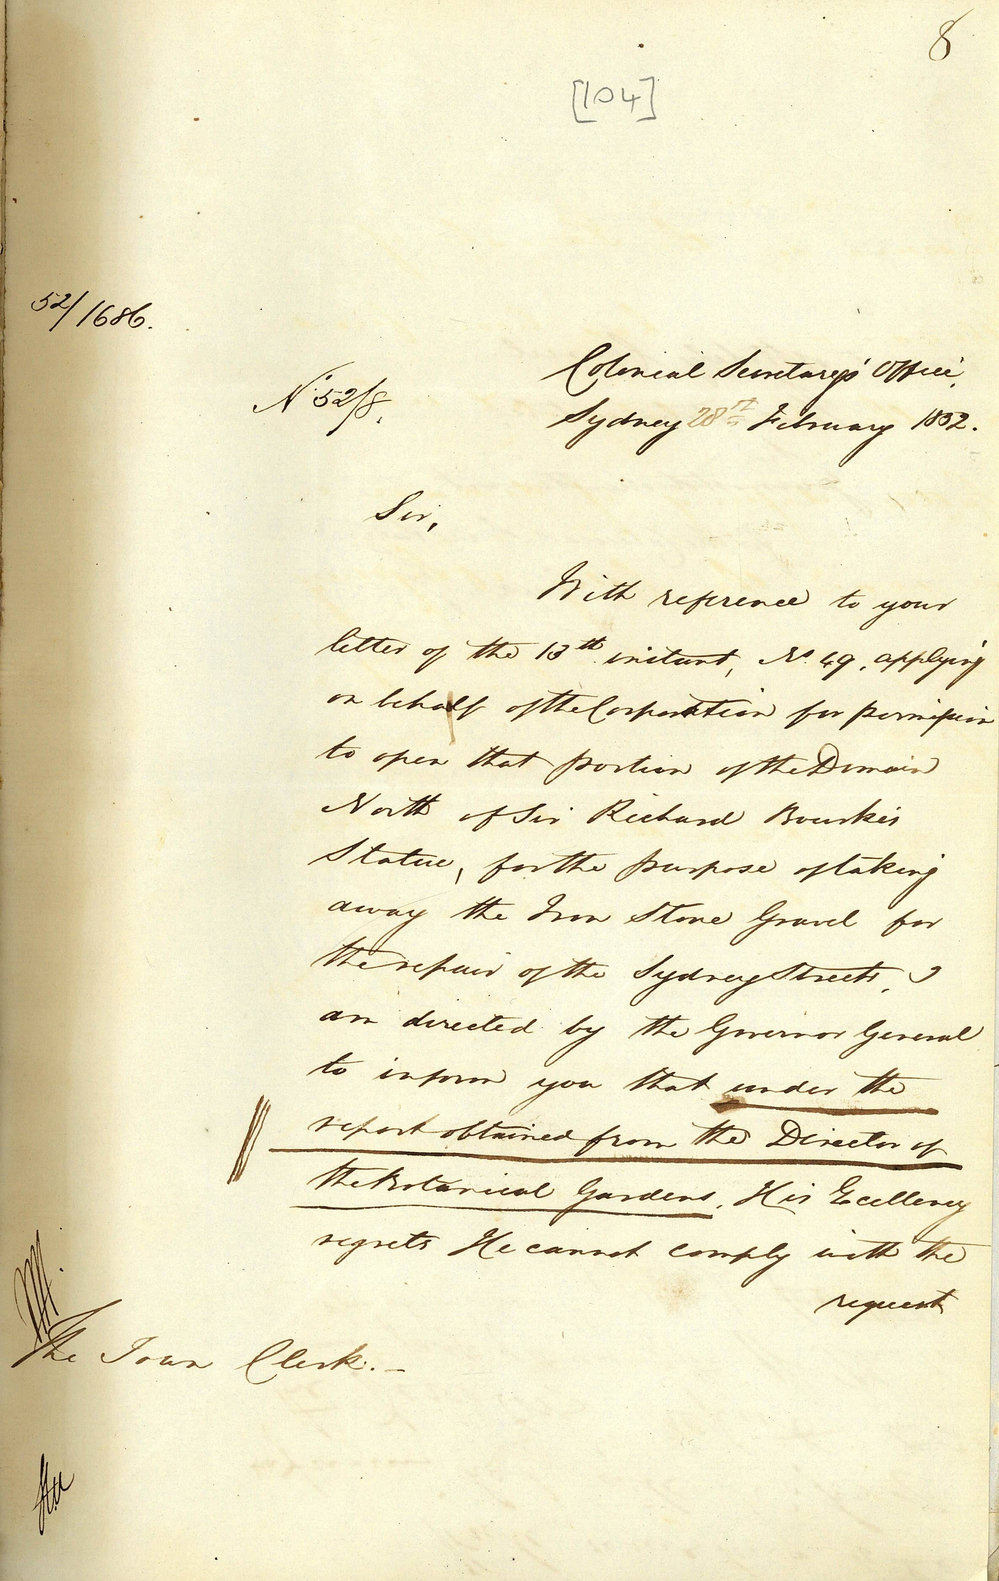 8
[104]
52/1686.
Colonial Secretary's Office,
No 52/8.
Sydney 28th February 1852.
Sir,
With reference to your
letter of the 13th instant, No. 49, applying
on behalf of the Corporation for permission
to open that portion of the Domain
North of Sir Richard Bourke's
Statue, for the purpose of taking
away the Iron Stone Gravel for
the repair of the Sydney Streets, I
am directed by the Governor General
to inform you that under the
report obtained from the Director of
the Botanical Gardens, His Excellency
regrets He cannot comply with the
request
The Town Clerk. –